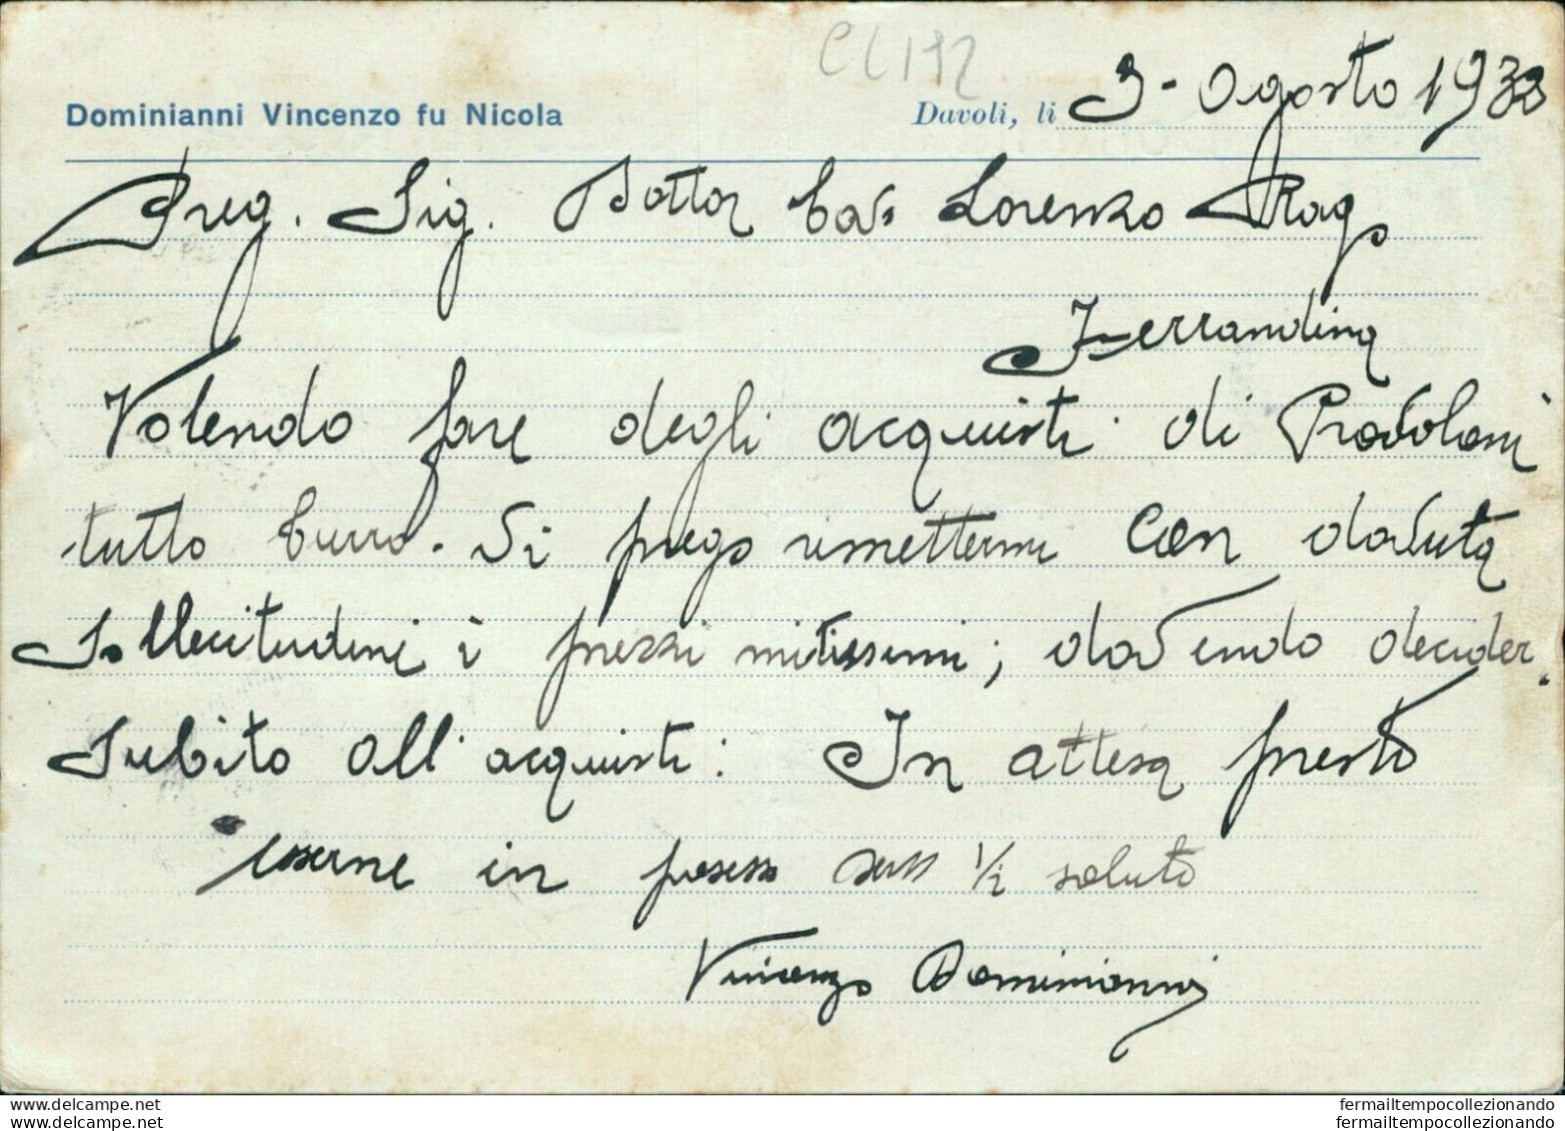 CL192
Dominianni Vincenzo fu Nicola
Davoli, li 3- Agosto 1933
Preg. Sig. Dottor Cav. Lorenzo Rago
Ferrandina
Volendo fare degli acquisti di Provoloni
tutto burro. Si prego rimettermi con dovuta
sollecitudine i prezzi mitissimi; dovendo decider.
subito all'acquisti: In attesa presto
esserne in possesso saluto
Vincenzo Dominianni
www.delcampe.net
www.delcampe.net
fermailtempocollezionando
fermailtempocollezionando